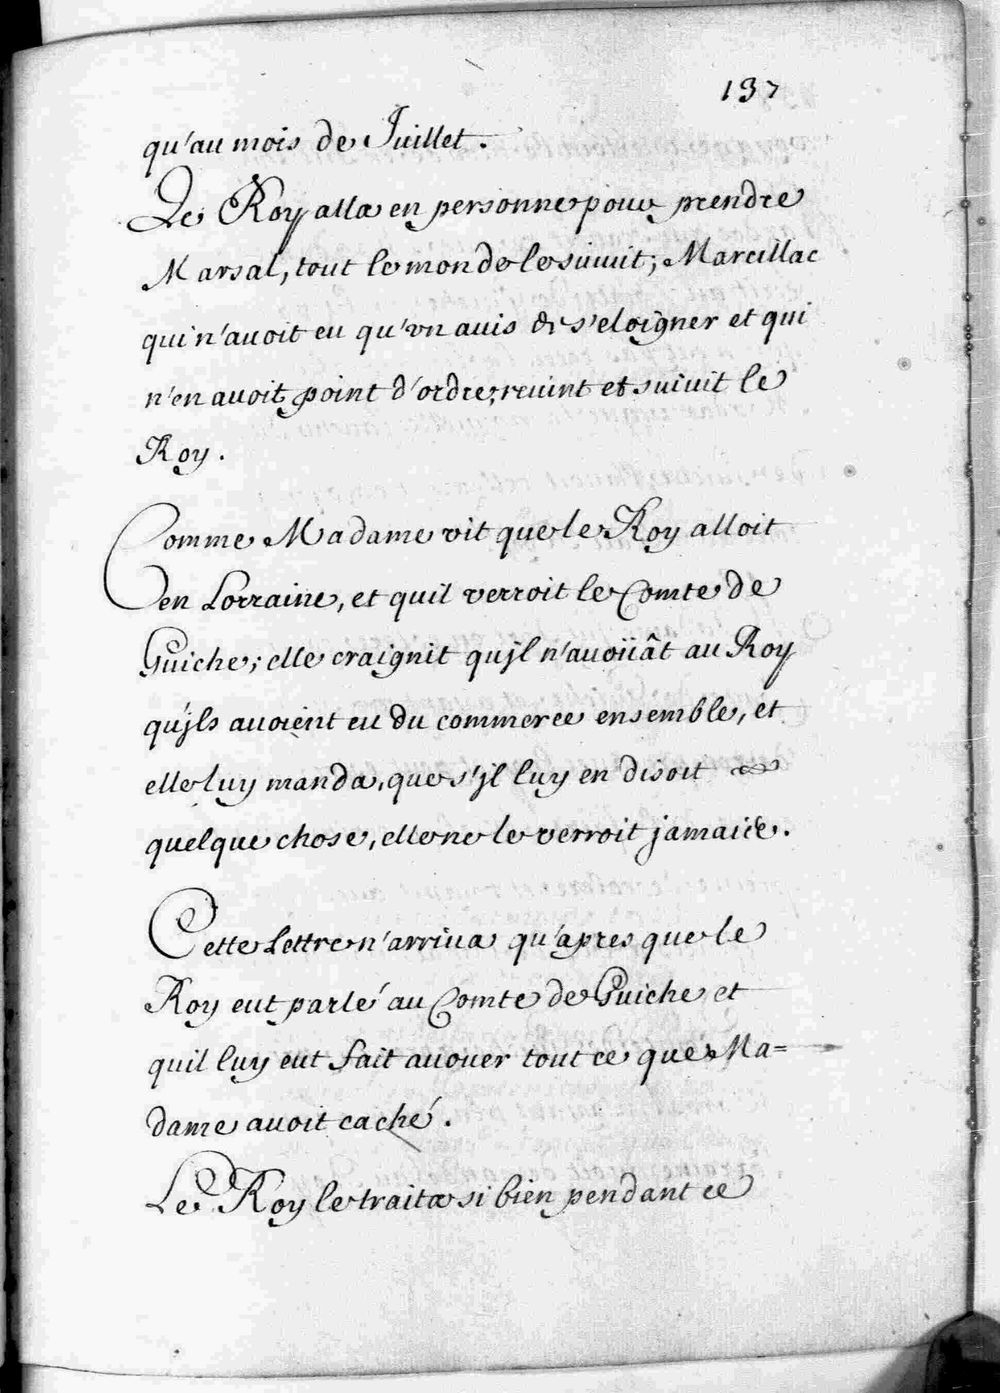 137
qu'au mois de Juillet.
Le Roy alla en personne pour prendre
Marsal, tout le monde le suivit; Marcillac
qui n'avoit eu qu'vn auis de s'eloigner et qui
n'en avoit point d'ordre, revint et suivit le
Roy.
Comme Madame vit que le Roy alloit
en Lorraine, et quil verroit le Comte de
Guiche; elle craignit qu'jl n'auoüât au Roy
qu'jls avoient eu du commerce ensemble, et
elle luy manda, que s'jl luy en disoit
quelque chose, elle ne le verroit jamais.
Cette Lettre n'arriua qu'apres que le
Roy eut parlé au Comte de Guiche et
quil luy eut fait auouer tout ce que Ma=
dame avoit caché.
Le Roy le traita si bien pendant ce